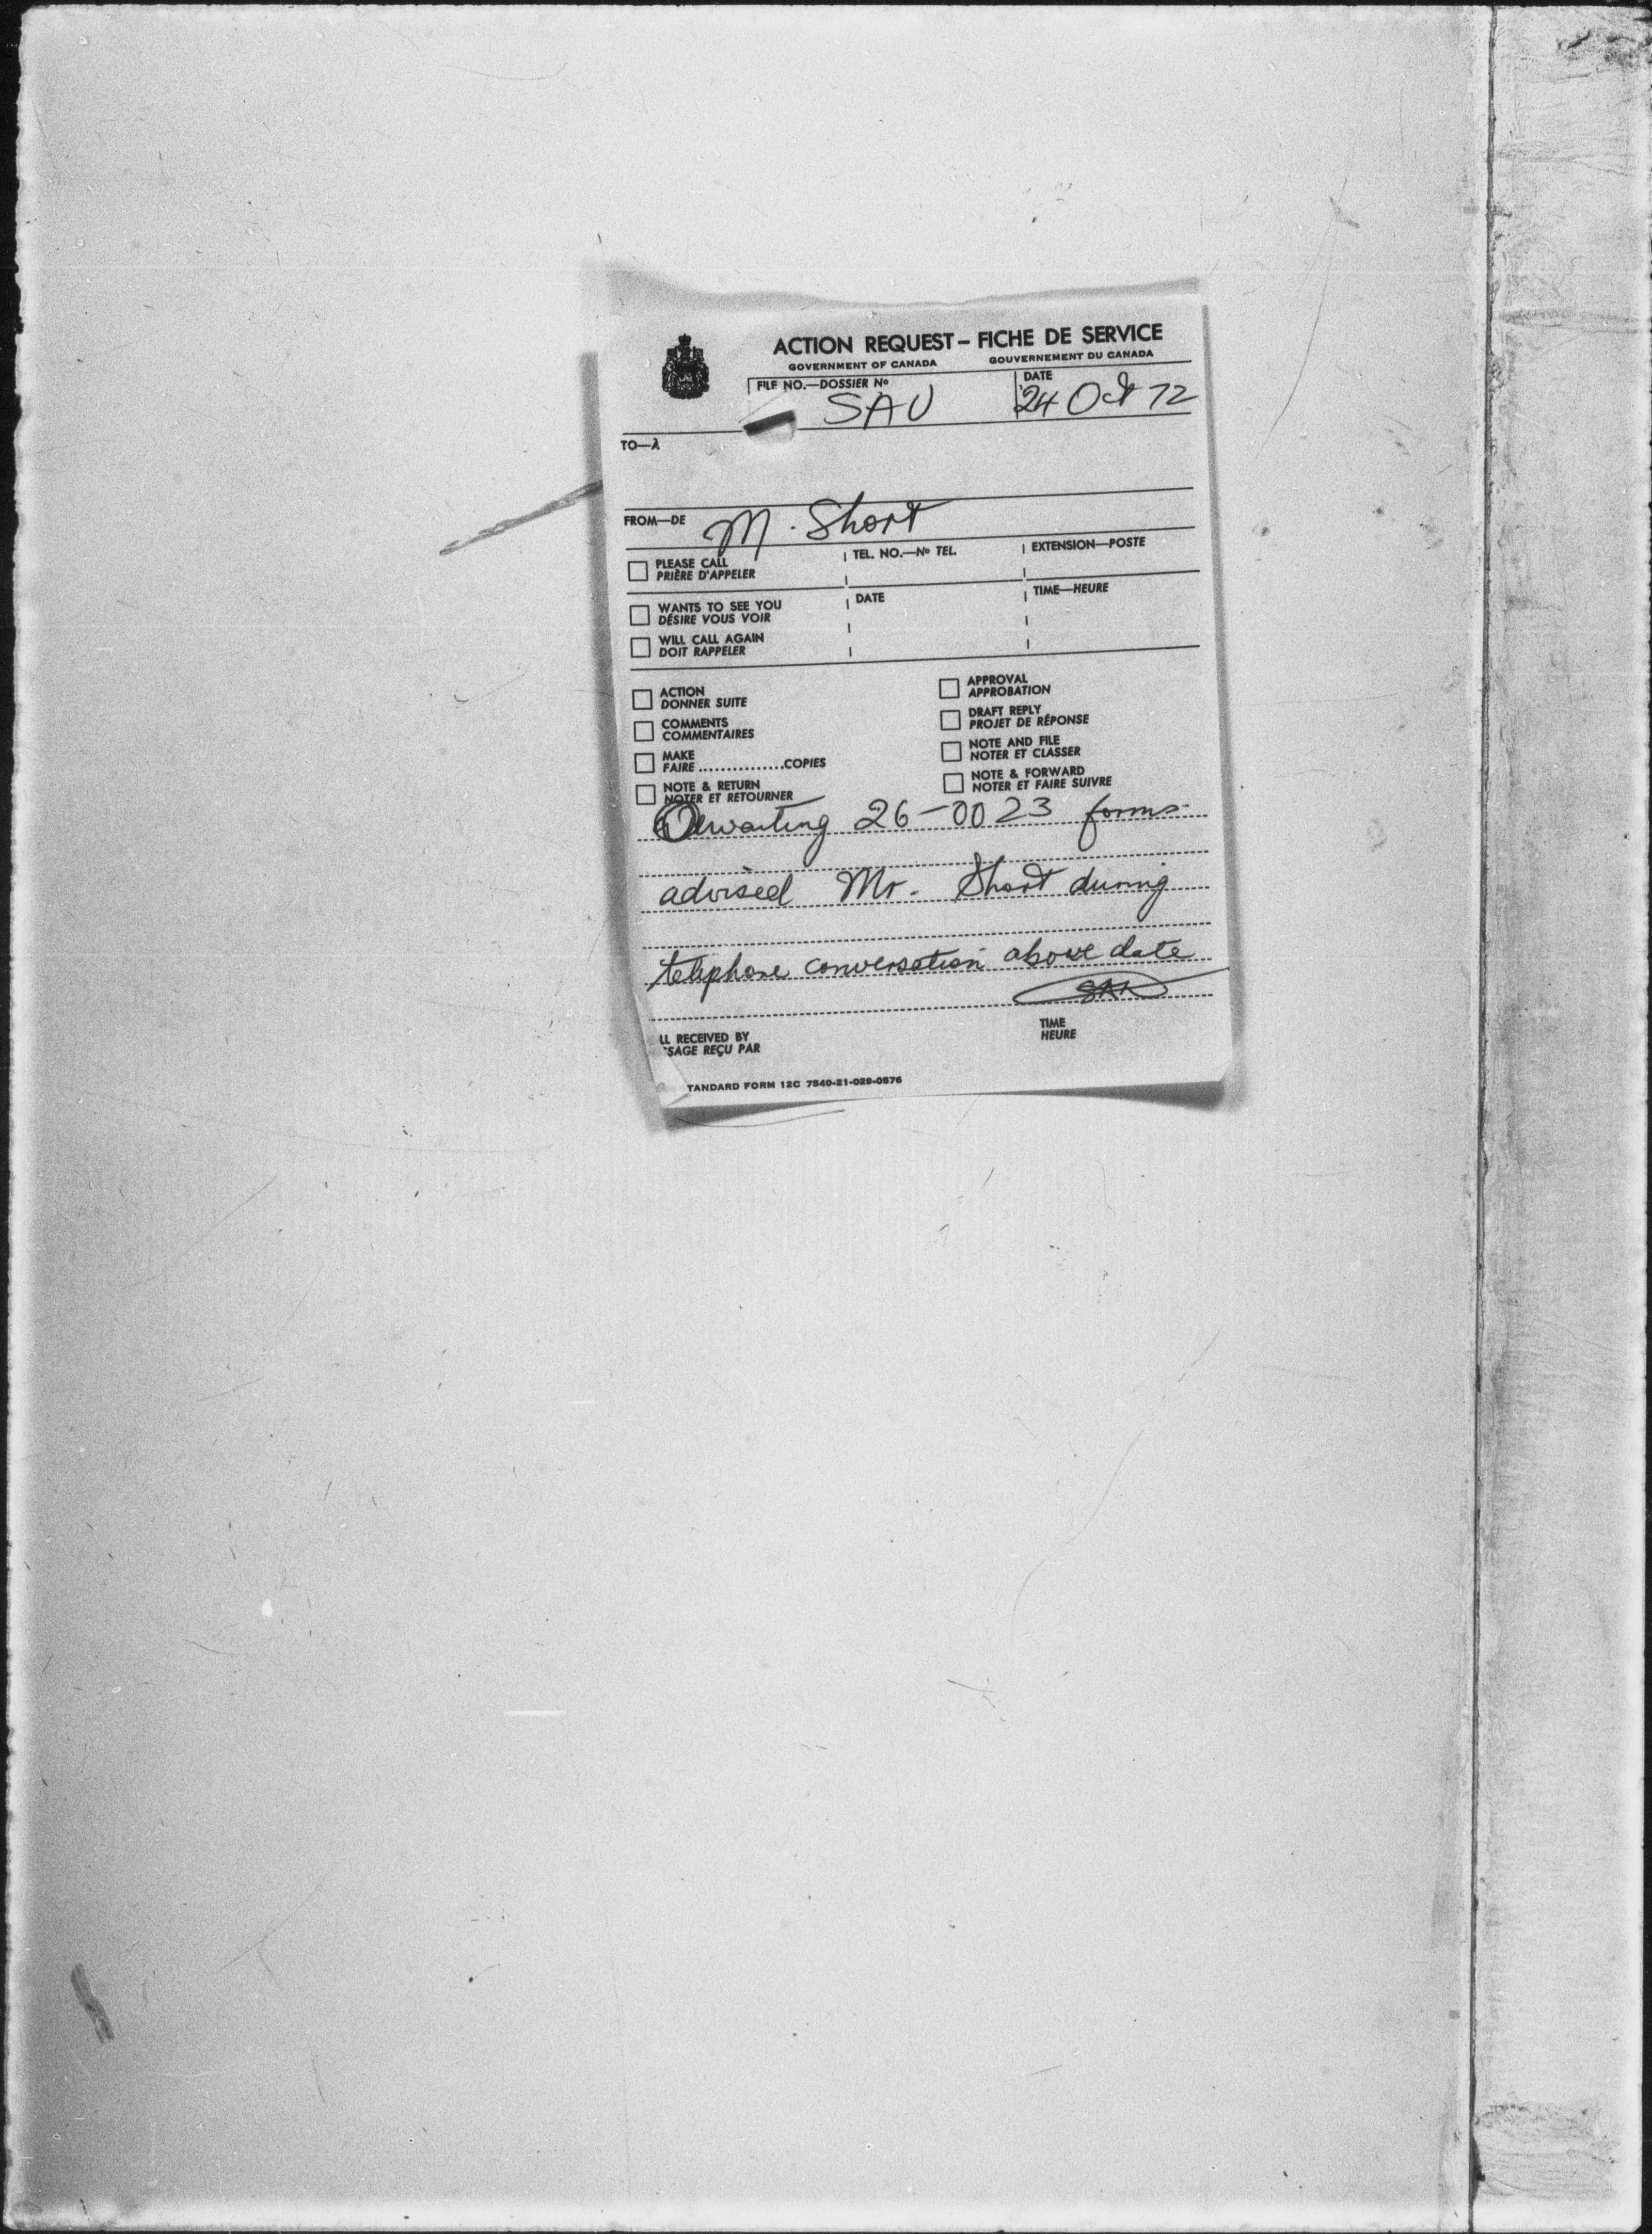 ACTION REQUEST – FICHE DE SERVICE
GOVERNMENT OF CANADA GOUVERNEMENT DU CANADA
FILE NO.—DOSSIER No DATE
SAU 24 Oct 72
TO—À
FROM—DE M. Short
PLEASE CALL TEL. NO.—No TEL. EXTENSION—POSTE
PRIÈRE D'APPELER
WANTS TO SEE YOU DATE TIME—HEURE
DÉSIRE VOUS VOIR
WILL CALL AGAIN
DOIT RAPPELER
ACTION APPROVAL
DONNER SUITE APPROBATION
COMMENTS DRAFT REPLY
COMMENTAIRES PROJET DE RÉPONSE
MAKE NOTE AND FILE
FAIRE ...............COPIES NOTER ET CLASSER
NOTE & RETURN NOTE & FORWARD
NOTER ET RETOURNER NOTER ET FAIRE SUIVRE
Awaiting 26-0023 forms
advised Mr. Short during
telephone conversation above date
LL RECEIVED BY TIME
SAGE REÇU PAR HEURE
TANDARD FORM 12C 7540-21-029-0576